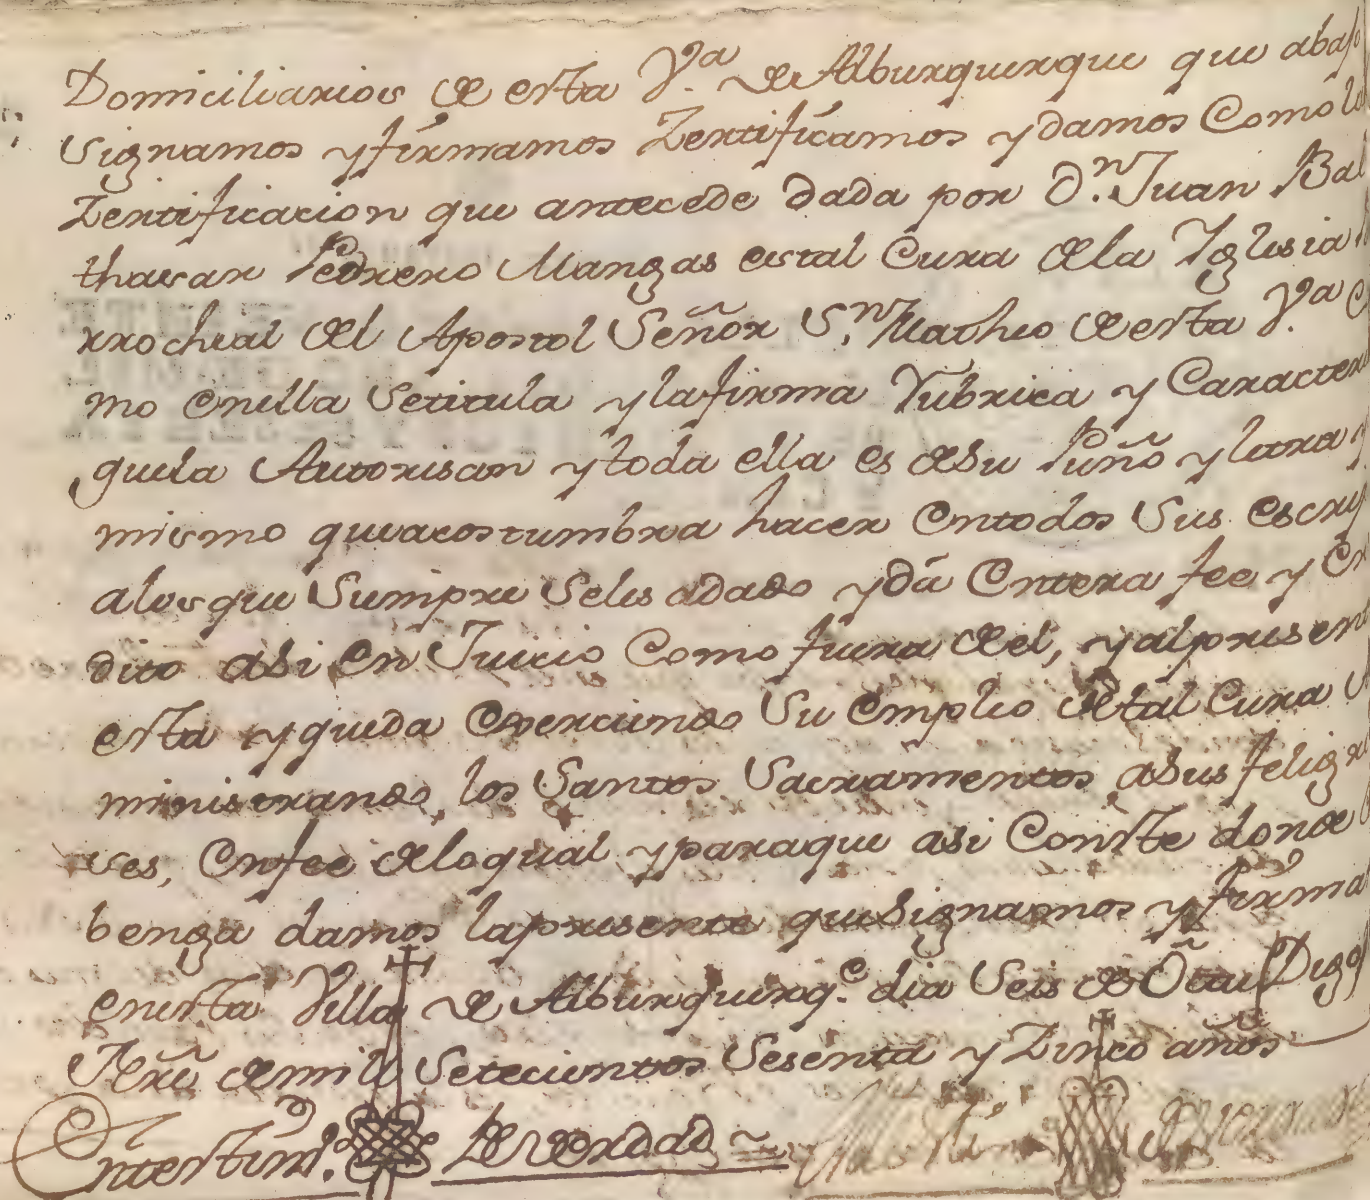 Domiciliarios de esta V.ª de Alburquerque que abajo
signamos y firmamos Zertificamos y damos Como la
Zertificacion que antecede dada por D.n Juan Bal
thasar Pedrero Mangas es tal Cura de la Iglesia
rrochial del Apostol Señor S.n Matheo de esta V.ª C
mo en ella se titula y la firma Rubrica y Caracter
que la Autorisan y toda ella es de su Puño y letra
mismo que acostumbra hacer en todos sus escri
a los que Siempre se les a dado y dá Entera fee y Cre
dito asi en Juicio Como fuera de el, y al presen
esta y queda Exerciendo su Empleo de tal Cura
ministrando, los Santos Sacramentos, a sus feligr
ses, En fee de lo qual y para que asi Conste donde
benga damos la presente que signamos y firma
en esta Villa de Alburquerq.e dia Seis de Õtu
Bre de mil Setecientos Sesenta y Zinco años
En testim.o de verdad